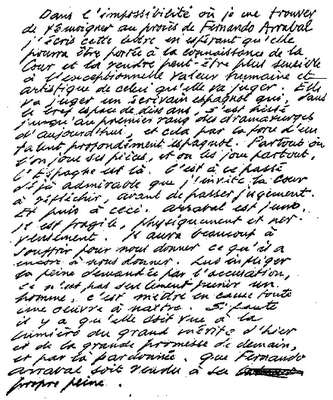 Dans l'impossibilité où je me trouve
de témoigner au procès de Fernando Arrabal
j'écris cette lettre en espérant qu'elle
pourra être portée à la connaissance de la
Cour et la rendre peut-être plus sensible
à l'exceptionnelle valeur humaine et
artistique de celui qu'elle va juger. Elle
va juger un écrivain espagnol qui, dans
le bref espace de dix ans, s'est hissé
jusqu'au premier rang des dramaturges
d'aujourd'hui, et cela par la force d'un
talent profondément espagnol. Partout où
l'on joue ses pièces, et on les joue partout,
l'Espagne est là. C'est à ce passé
déjà admirable que j'invite la Cour
à réfléchir, avant de passer jugement.
Et puis à ceci. Arrabal est jeune.
Il est fragile, physiquement et ner-
veusement. Il aura beaucoup à
souffrir pour nous donner ce qu'il a
encore à nous donner. Lui infliger
la peine demandée par l'accusation,
ce n'est pas seulement punir un
homme, c'est mettre en cause toute
une oeuvre à naître. Si faute
il y a qu'elle soit vue à la
lumière du grand mérite d'hier
et de la grande promesse de demain,
et par là pardonnée. Que Fernando
Arrabal soit rendu à sa
propre peine.